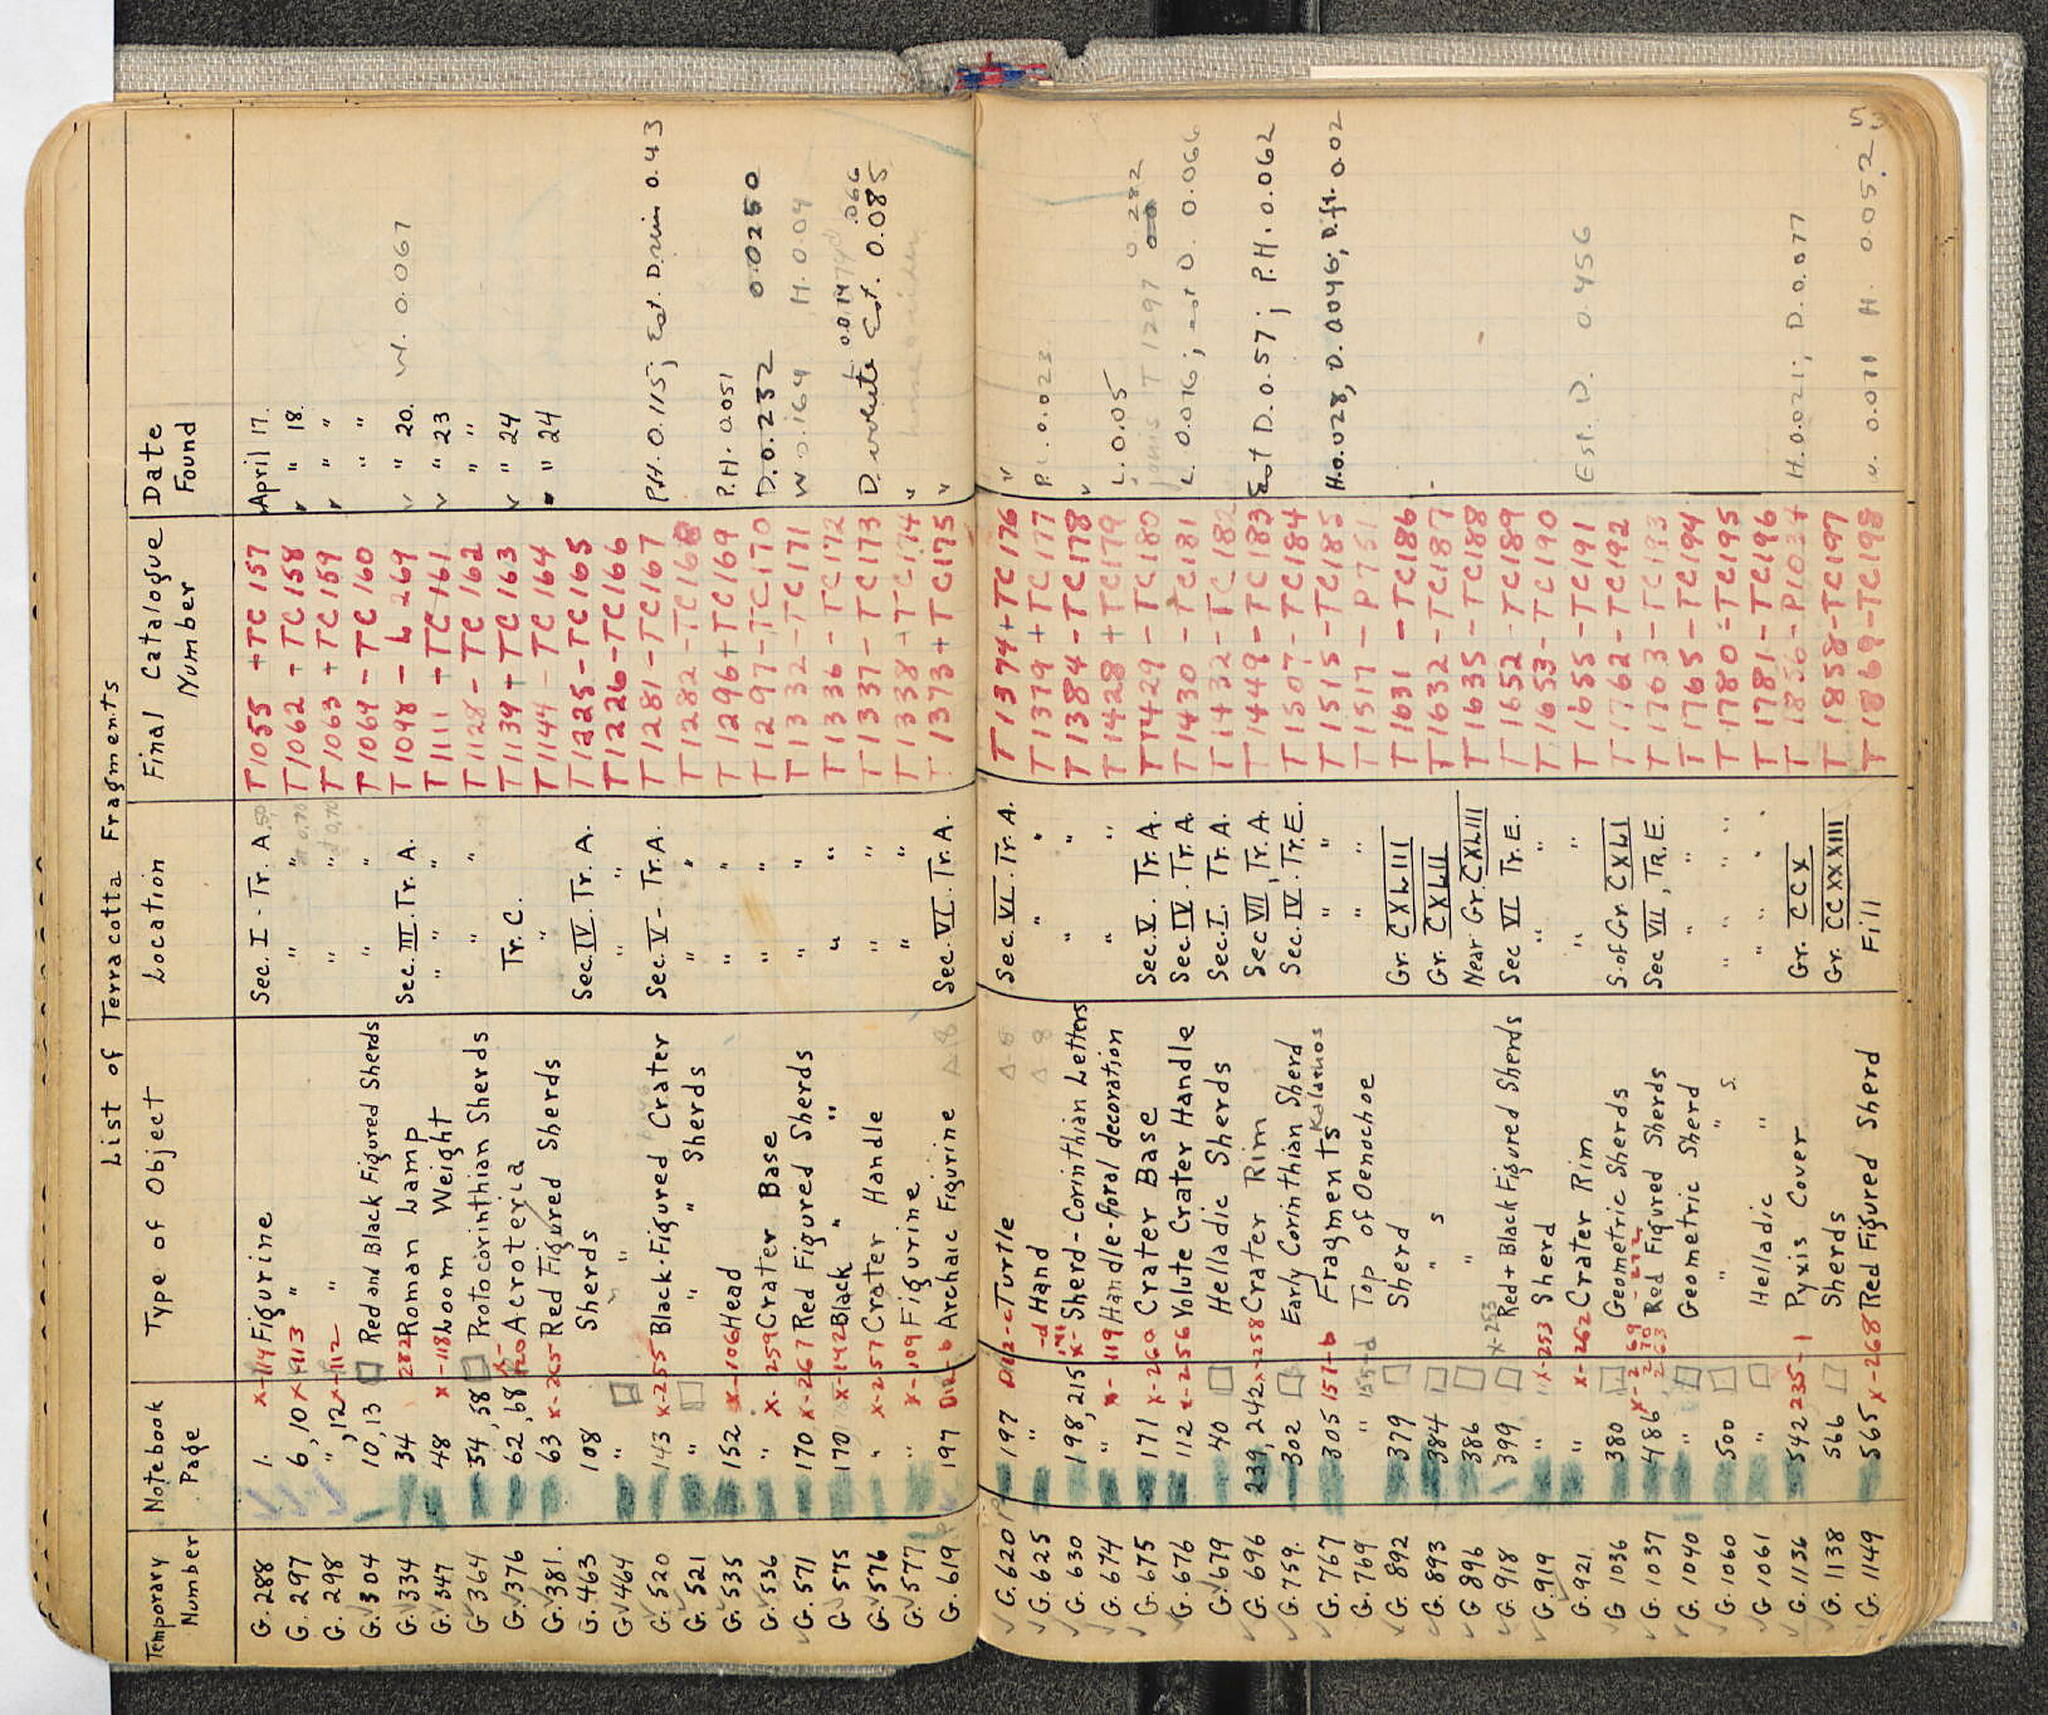 List of Terracotta Fragments
Temporary Number Notebook Page Type of Object Location Final Catalogue Number Date Found
G. 288 1. x-114 Figurine Sec. I - Tr. A. T1055 + TC 157 April 17.
G. 297 6, 10 x-113 " " " T1062 + TC 158 " " 18.
G. 298 ", 12 x-112 " " " T1063 + TC 159 " " "
G. 304 10, 13 Red and Black Figured Sherds " " T1069 - TC 160 " "
G. 334 34 282 Roman Lamp Sec. III. Tr. A. T1098 - L 269 " " 20. W. 0.067
G. 347 48 x-118 Loom Weight " " " T1111 + TC 161 " " 23
G 364 54, 58 Protocorinthian Sherds " " T1128 - TC 162 " "
G. 376 62, 68 x-120 Acroteria Tr. C. T1139 + TC 163 " " 24
G. 381. 63 x-265 Red Figured Sherds " T1144 - TC 164 " " 24
G. 463 108 Sherds Sec. IV. Tr. A. T1225 - TC 165
G 464 " " " " T1226 - TC 166
G. 520 143 x-255 Black-Figured Crater Sec. V - Tr. A. T1281 - TC 167 P.H. 0.115; Est. D. rim 0.43
G. 521 " " " Sherds " " T1282 - TC 168
G. 535 152 x-106 Head " " T1296 + TC 169 P.H. 0.051
G. 536 " x-259 Crater Base " " T1297 - TC 170 D. 0.232 0.0250
G. 571 170 x-267 Red Figured Sherds " " T1332 - TC 171 W 0.164 H. 0.04
G 575 170 x-142 Black " " " " T1336 - TC 172 .066
G. 576 " x-257 Crater Handle " " T1337 - TC 173 D. volute Est. 0.085
G. 577 " x-109 Figurine " " T1338 + TC 174 "
G. 619 197 D12-b Archaic Figurine Δ-8 Sec. VI. Tr. A. T1373 + TC 175 "
G. 620 197 D12-c Turtle Δ-8 Sec. VI. Tr. A. T1374 + TC 176 "
G. 625 " -d Hand Δ-8 " " T1379 + TC 177 P.L. 0.023
G. 630 198, 215 x-141 Sherd-Corinthian Letters " " T1384 - TC 178 "
G. 674 " x-119 Handle-floral decoration " " T1428 + TC 179 L. 0.05
G. 675 171 x-260 Crater Base Sec. V. Tr. A. T1429 - TC 180 joins T 1297 0.282
G. 676 112 x-256 Volute Crater Handle Sec. IV. Tr. A. T1430 - TC 181 L. 0.076; est D. 0.066
G. 679 40 Helladic Sherds Sec. I. Tr. A. T1432 - TC 182
G. 696 239, 242 x-258 Crater Rim Sec VII, Tr. A. T1449 - TC 183 Est D. 0.57; P.H. 0.062
G. 759. 302 Early Corinthian Sherd Sec. IV. Tr. E. T1507 - TC 184
G. 767 305 151-b Fragments Kalathos " " T1515 - TC 185 H. 0.028, D. 0.046; D.ft. 0.02
G. 769 " Top of Oenochoe " " T1517 - P751
G. 892 379 Sherd Gr. CXLIII T1631 - TC 186
G. 893 384 " s Gr. CXLII T1632 - TC 187
G 896 386 " Near Gr. CXLIII T1635 - TC 188
G. 918 399 x-253 Red + Black Figured Sherds Sec VI Tr. E. T1652 - TC 189
G. 919 " x-253 Sherd " " T1653 - TC 190
G. 921 " x-262 Crater Rim " " T1655 - TC 191 Est. D. 0.456
G 1036 380 Geometric Sherds S. of Gr. CXLI T1762 - TC 192
G. 1037 486 Red Figured Sherds Sec VII, Tr. E. T1763 - TC 193
G. 1040 " Geometric Sherd " " T1765 - TC 194
G. 1060 500 " " s. " " T1780 - TC 195
G. 1061 Helladic " " " T1781 - TC 196
G. 1136 542 235-1 Pyxis Cover Gr. CCX T1856 - P1034 H. 0.021; D. 0.077
G. 1138 566 Sherds Gr. CCXXXIII T1858 - TC 197
G. 1149 565 x-268 Red Figured Sherd Fill T1869 - TC 198 W. 0.071 H. 0.052
53